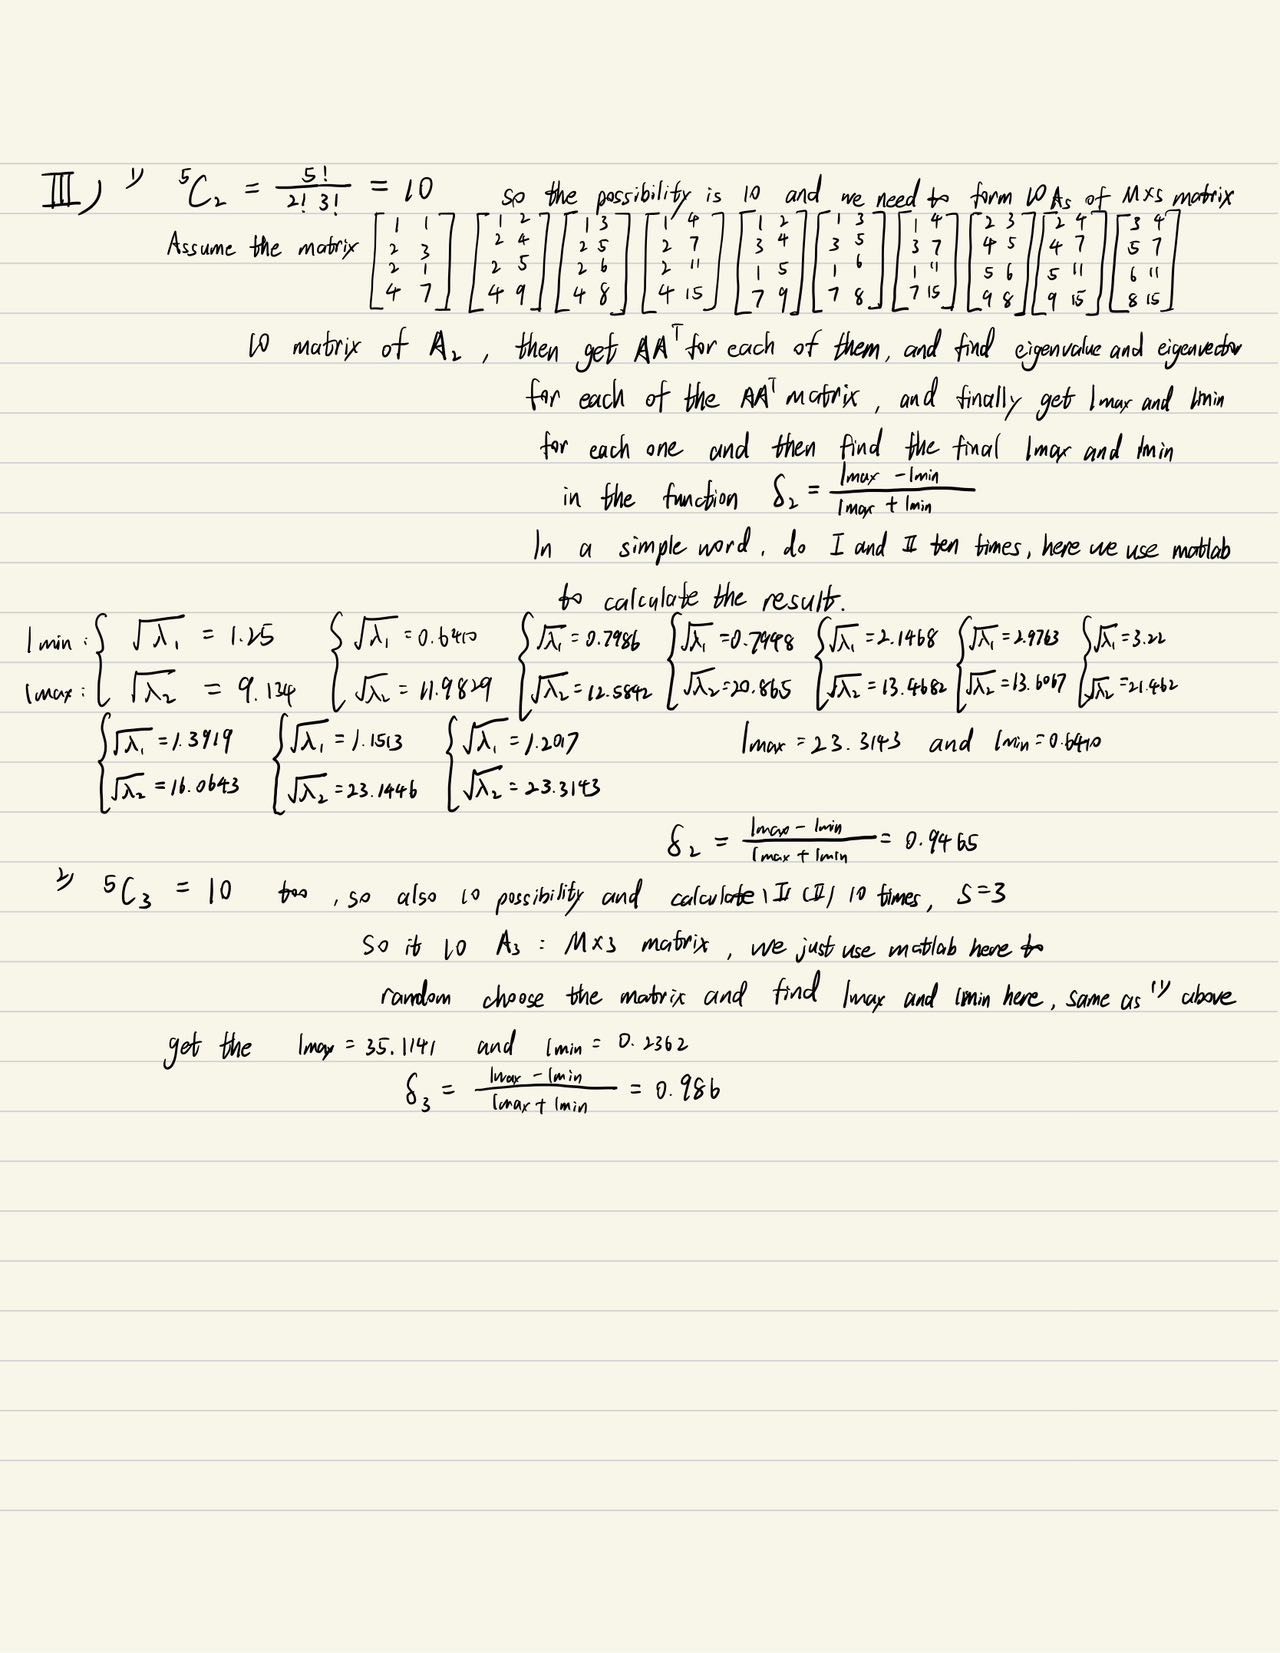 III) 1) ⁵C₂ = 5!/(2! 3!) = 10 so the possibility is 10 and we need to form 10 As of M×s matrix
Assume the matrix [1 1; 2 3; 2 1; 4 7] [1 2; 2 4; 2 5; 4 9] [1 3; 2 5; 2 6; 4 8] [1 4; 2 7; 2 11; 4 15] [1 2; 3 4; 1 5; 7 9] [1 3; 3 5; 1 6; 7 8] [1 4; 3 7; 1 11; 7 15] [2 3; 4 5; 5 6; 9 8] [2 4; 4 7; 5 11; 9 15] [3 4; 5 7; 6 11; 8 15]
10 matrix of A₂, then get AAᵀ for each of them, and find eigenvalue and eigenvector
for each of the AAᵀ matrix, and finally get lmax and lmin
for each one and then find the final lmax and lmin
in the function δ₂ = (lmax - lmin)/(lmax + lmin)
In a simple word, do I and II ten times, here we use matlab
to calculate the result.
lmin: { √λ₁ = 1.25 { √λ₁ = 0.6410 { √λ₁ = 0.7986 { √λ₁ = 0.7998 { √λ₁ = 2.1468 { √λ₁ = 2.9763 { √λ₁ = 3.22
lmax: √λ₂ = 9.134 √λ₂ = 11.9829 √λ₂ = 12.5842 √λ₂ = 20.865 √λ₂ = 13.4682 √λ₂ = 13.6067 √λ₂ = 21.462
{ √λ₁ = 1.3919 { √λ₁ = 1.1513 { √λ₁ = 1.2017 lmax = 23.3143 and lmin = 0.6410
√λ₂ = 16.0643 √λ₂ = 23.1446 √λ₂ = 23.3143
δ₂ = (lmax - lmin)/(lmax + lmin) = 0.9465
2) ⁵C₃ = 10 too, so also 10 possibility and calculate I II (II) 10 times, S=3
So it 10 A₃ : M×3 matrix, we just use matlab here to
random choose the matrix and find lmax and lmin here, same as 1) above
get the lmax = 35.1141 and lmin = 0.2362
δ₃ = (lmax - lmin)/(lmax + lmin) = 0.986